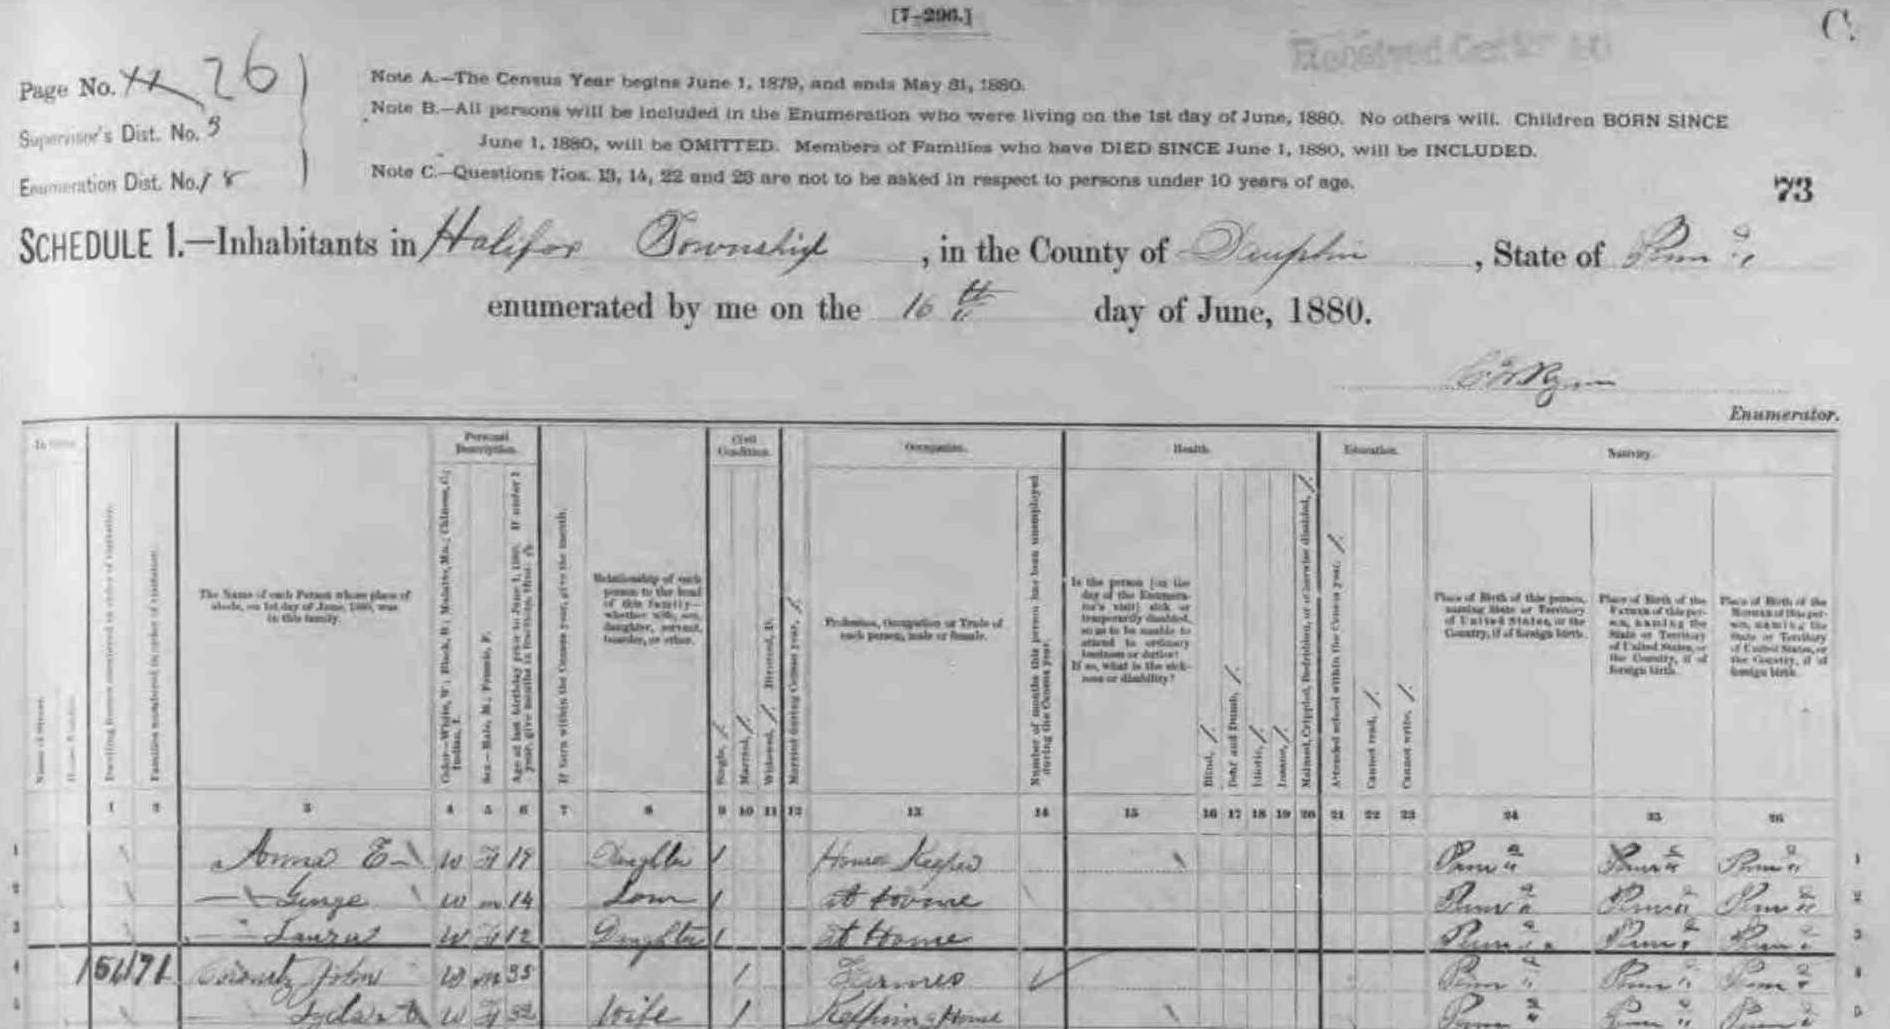 [7-296.]
C.
Page No. 26
Supervisor's Dist. No. 3
Enumeration Dist. No. 18
Note A.—The Census Year begins June 1, 1879, and ends May 31, 1880.
Note B.—All persons will be included in the Enumeration who were living on the 1st day of June, 1880. No others will. Children BORN SINCE
June 1, 1880, will be OMITTED. Members of Families who have DIED SINCE June 1, 1880, will be INCLUDED.
Note C.—Questions Nos. 13, 14, 22 and 23 are not to be asked in respect to persons under 10 years of age.
73
SCHEDULE 1.—Inhabitants in Halifax Township, in the County of Dauphin, State of Penn a
enumerated by me on the 16th day of June, 1880.
Enumerator.
Personal Description.
Civil Condition.
Occupation.
Health.
Education.
Nativity.
Dwelling houses numbered in order of visitation.
Families numbered in order of visitation.
The Name of each Person whose place of
abode, on 1st day of June, 1880, was
in this family.
Color—White, W.; Black, B.; Mulatto, Mu.; Chinese, C.;
Indian, I.
Sex—Male, M.; Female, F.
Age at last birthday prior to June 1, 1880. If under 1
year, give months in fractions, thus:
If born within the Census year, give the month.
Relationship of each
person to the head
of this family—
whether wife, son,
daughter, servant,
boarder, or other.
Single, /.
Married, /.
Widowed, /. Divorced, D.
Married during Census year, /.
Profession, Occupation or Trade of
each person, male or female.
Number of months this person has been unemployed
during the Census year.
Is the person [on the
day of the Enumera-
tor's visit] sick or
temporarily disabled,
so as to be unable to
attend to ordinary
business or duties?
If so, what is the sick-
ness or disability?
Blind, /.
Deaf and Dumb, /.
Idiotic, /.
Insane, /.
Maimed, Crippled, Bedridden, or otherwise disabled, /.
Attended school within the Census year, /.
Cannot read, /.
Cannot write, /.
Place of Birth of this person,
naming State or Territory
of United States, or the
Country, if of foreign birth.
Place of Birth of the
FATHER of this per-
son, naming the
State or Territory
of United States, or
the Country, if of
foreign birth.
Place of Birth of the
MOTHER of this per-
son, naming the
State or Territory
of United States, or
the Country, if of
foreign birth.
1 2 3 4 5 6 7 8 9 10 11 12 13 14 15 16 17 18 19 20 21 22 23 24 25 26
1 Anna E W F 19 Daughter / House Keeper Penn a Penn a Penn a 1
2 — George W m 14 Son / at home Penn a Penn a Penn a 2
3 — Laura W F 12 Daughter / at Home Penn a Penn a Penn a 3
4 John W m 35 / Farmer Penn a Penn a Penn a 4
5 W F 32 Wife / House Penn a Penn a Penn a 5